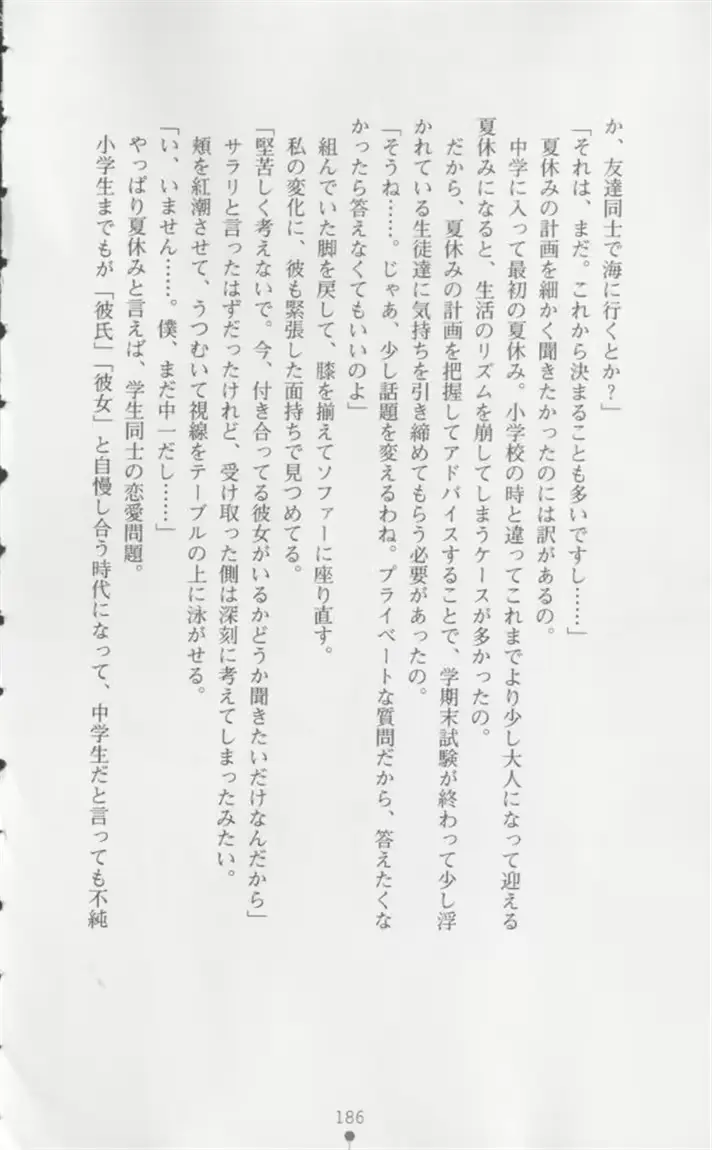 か、友達同士で海に行くとか？」
「それは、まだ。これから決まることも多いですし……」
夏休みの計画を細かく聞きたかったのには訳があるの。
中学に入って最初の夏休み。小学校の時と違ってこれまでより少し大人になって迎える
夏休みになると、生活のリズムを崩してしまうケースが多かったの。
だから、夏休みの計画を把握してアドバイスすることで、学期末試験が終わって少し浮
かれている生徒達に気持ちを引き締めてもらう必要があったの。
「そうね……。じゃあ、少し話題を変えるわね。プライベートな質問だから、答えたくな
かったら答えなくてもいいのよ」
組んでいた脚を戻して、膝を揃えてソファーに座り直す。
私の変化に、彼も緊張した面持ちで見つめてる。
「堅苦しく考えないで。今、付き合ってる彼女がいるかどうか聞きたいだけなんだから」
サラリと言ったはずだったけれど、受け取った側は深刻に考えてしまったみたい。
頬を紅潮させて、うつむいて視線をテーブルの上に泳がせる。
「い、いません……。僕、まだ中一だし……」
やっぱり夏休みと言えば、学生同士の恋愛問題。
小学生までもが「彼氏」「彼女」と自慢し合う時代になって、中学生だと言っても不純
186